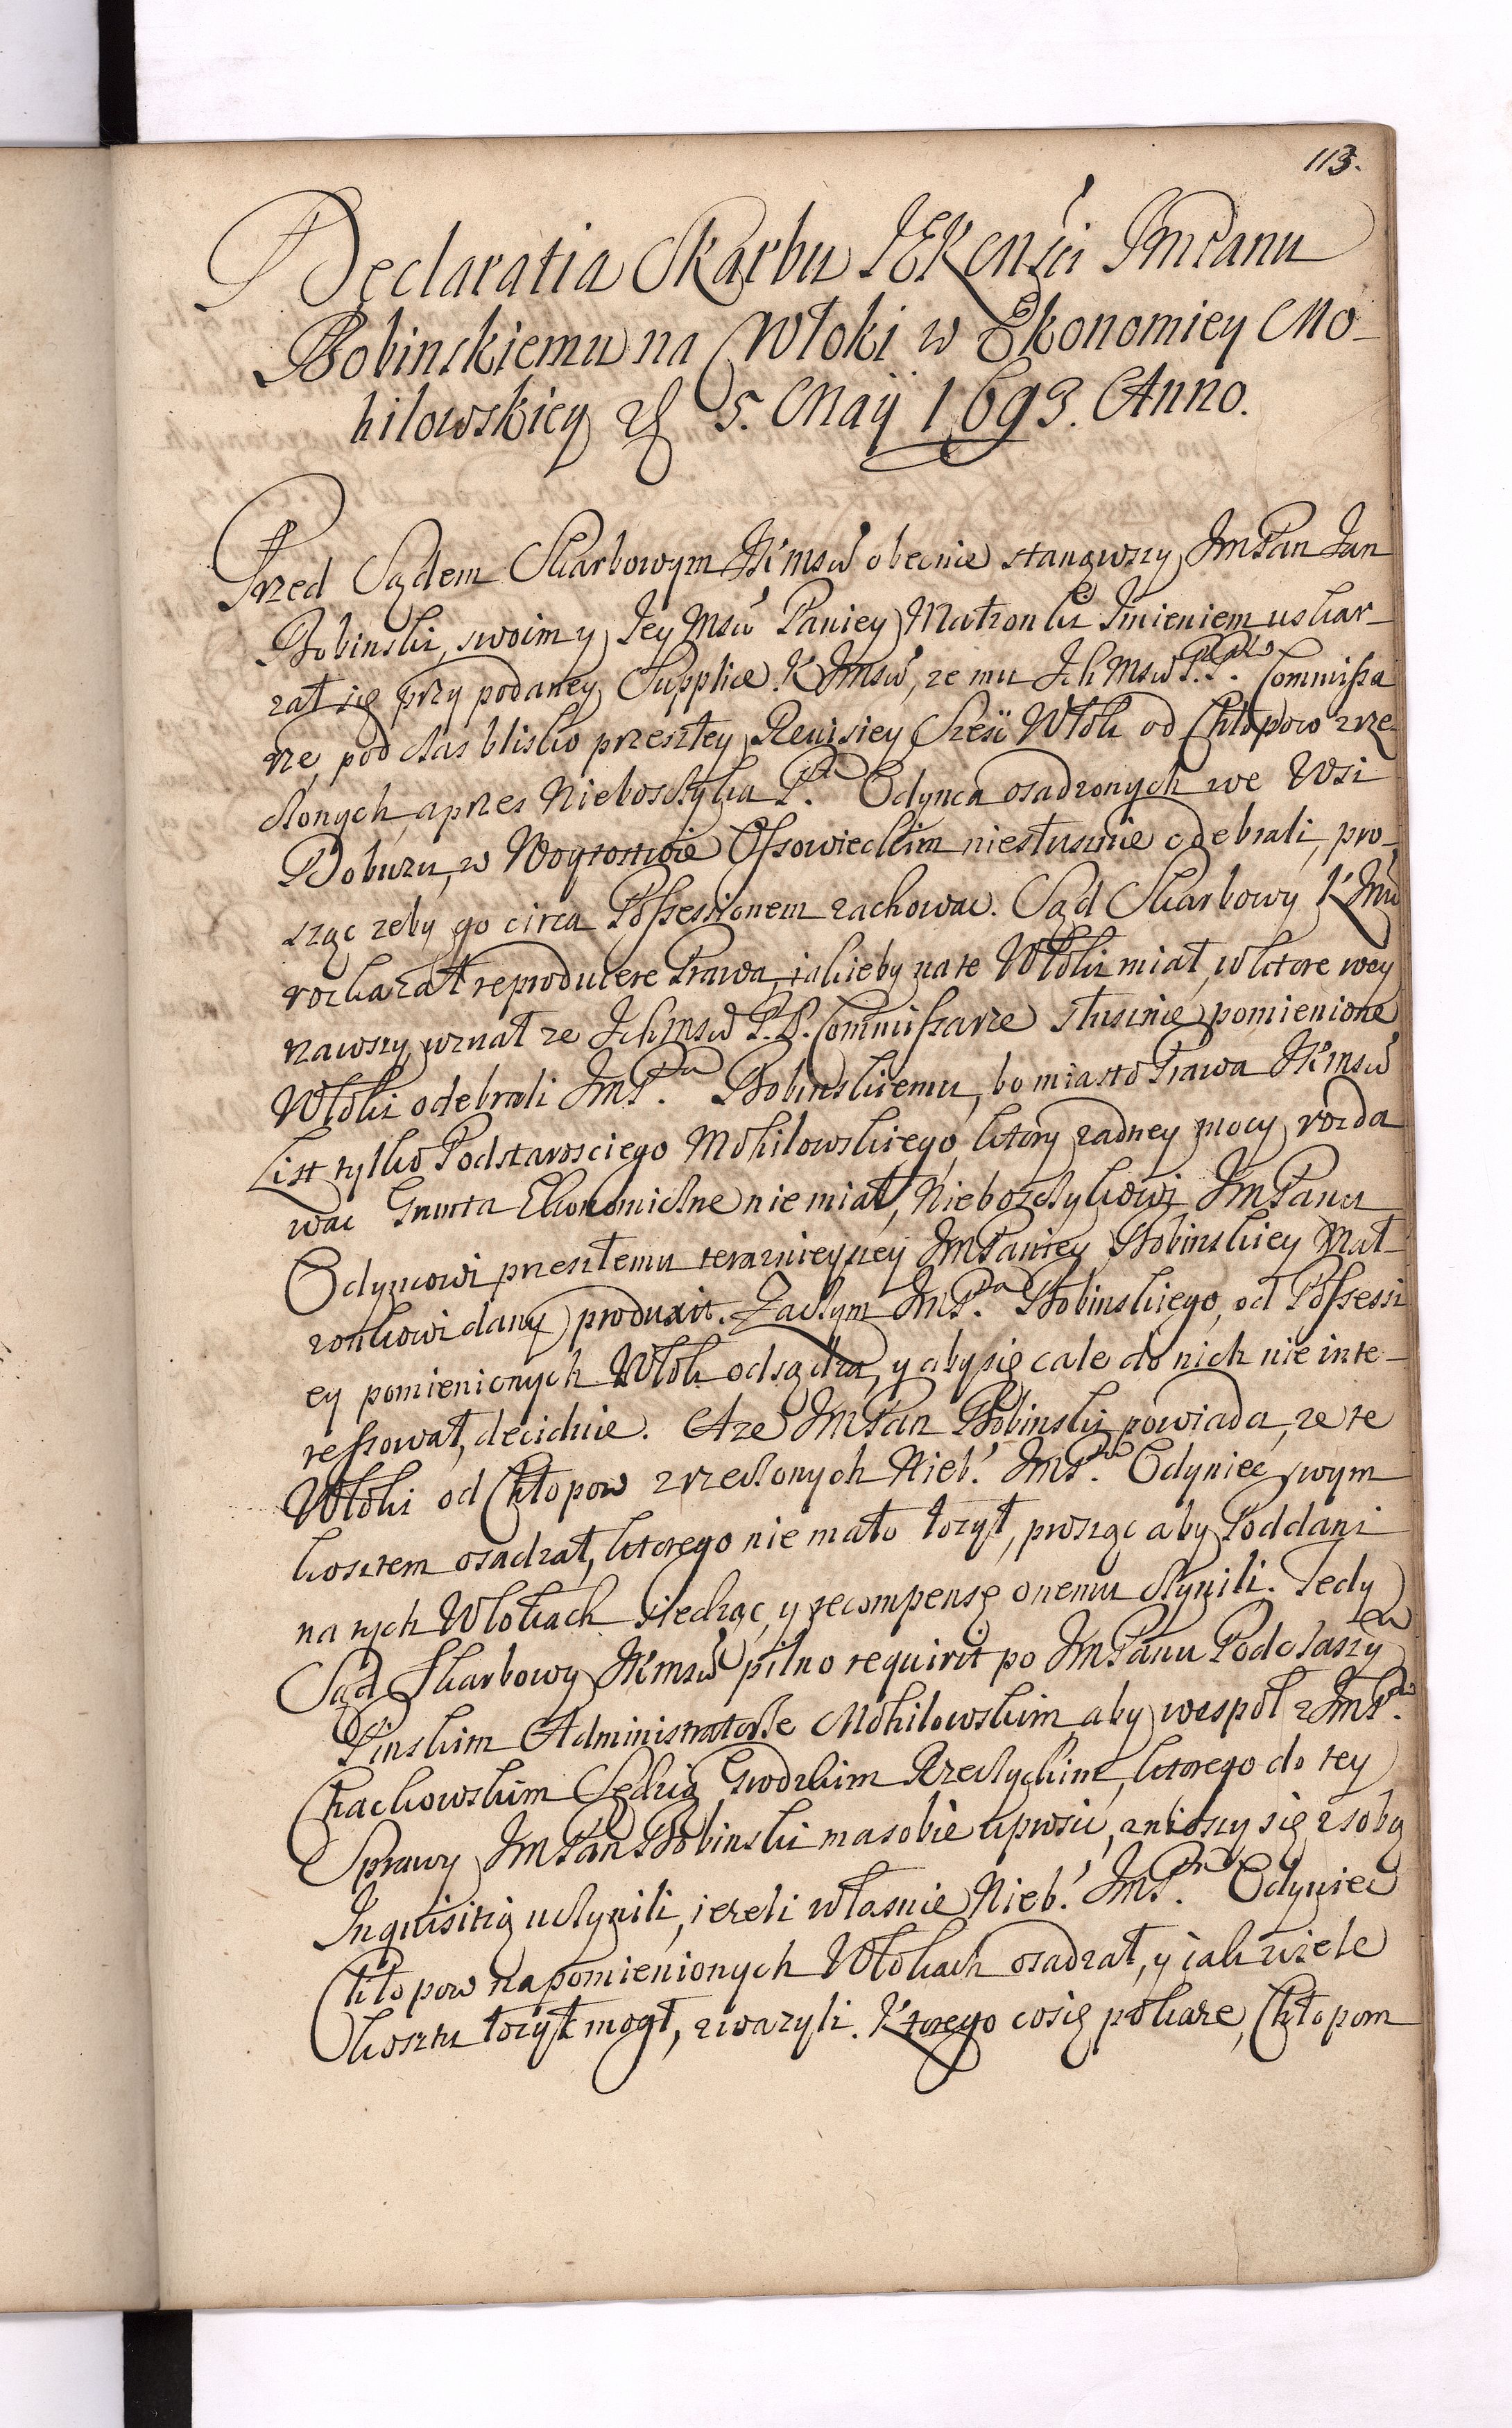 113.
Declaratia Skarbu JEKrMsci JmPanu
Bobinskiemu na Włoki w Ekonomiey Mo-
hilowskiey 5. Maÿ 1693. Anno.
Przed Sądem Skarbowym JKmsci obecnie stanąwszy JmPan Jan
Bobinski, swoim y Jey Msci Paniey Małzonki Jmieniem uskar-
zał się przy podaney Supplice KJmsci, ze mu Jch Msci P.P. Commissa
rze, pod czas blisko przeszłey Rewisiey Szesc Włok od Chłopow zrze
czonych, a przez Nieboszczyka P. Odynca osadzonych we Wsi
Doburu, w Woytostwie Ossowieckim niesłusznie odebrali, pro-
sząc zeby go circa Possessionem zachowac. Sąd Skarbowy KJm
rozkazał reproducere Prawa, iakieby na te Włoki miał, w ktore wey
rzawszy, uznał ze Jchmsc P.P. Commissarze słusznie pomienione
Włoki odebrali JmP. Bobinskiemu, bo miasto Prawa JKmsci
List tylko Podstarosciego Mohilowskiego, ktory zadney mocy rozda
wac Grunta Ekonomiczne nie miał, Nieboszczykowi JmPanu
Odyncowi przeszłemu terazneyszey JmPaniey Bobinskiey Mał-
zonkowi dany produxit. Zaczym JmP. Bobinskiego, od Possessi
ey pomienionych Włok odsądza, y aby się cale do nich nie inte-
ressował, deciduie. A ze JmPan Bobinski powiada, ze te
Włoki od Chłopow zrzeczonych Nieb. JmP. Odyniec swym
kosztem osadzał, ktorego nie mało łozył, prosząc aby Poddani
na tych Włokach siedząc, y recompensę onemu czynili. Tedy
Sąd Skarbowy JKmsci pilno requirit po JmPanu Podczaszy
Pinskim Administratorze Mohilowskim aby wespoł z JmP.
Chackowskim Sędzią Grodzkim Rzeczyckim, ktorego do tey
Sprawy JmPan Bobinski ma sobie uprosic, zniozszy się z sobą
Jnquisitią uczynili, iezeli własnie Nieb. JmP. Odyniec
Chłopow na pomienionych Włokach osadzał, y iak wiele
kosztu łozyc mogł, zwazyli. Ktorego co się pokaze, Chłopom